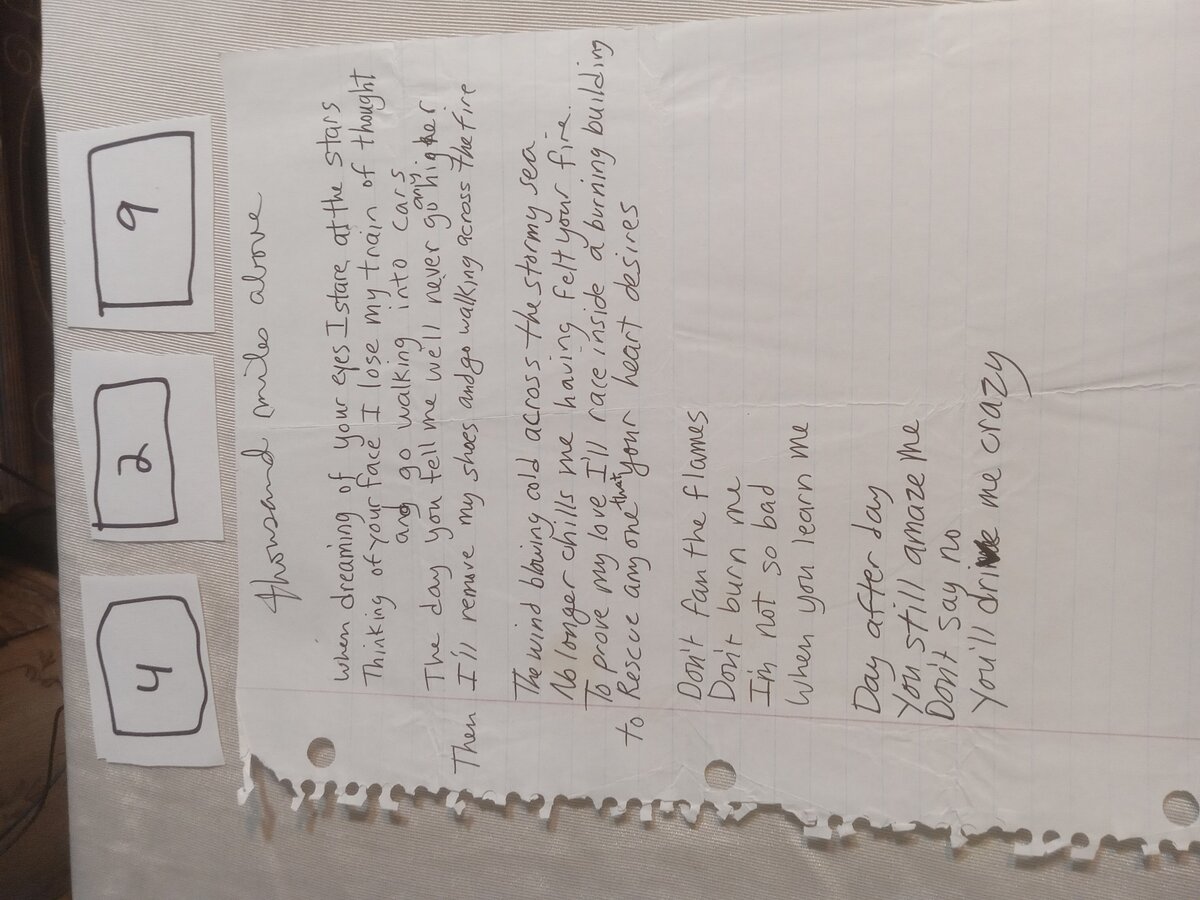 4
2
9
Thousand miles above
When dreaming of your eyes I stare at the stars
Thinking of your face I lose my train of thought
and go walking into cars
The day you tell me we'll never go any higher
Then I'll remove my shoes and go walking across the fire
The wind blowing cold across the stormy sea
No longer chills me having felt your fire.
To prove my love I'll race inside a burning building
to Rescue anyone that your heart desires
Don't fan the flames
Don't burn me
I'm not so bad
When you learn me
Day after day
You still amaze me
Don't say no
You'll drive me crazy